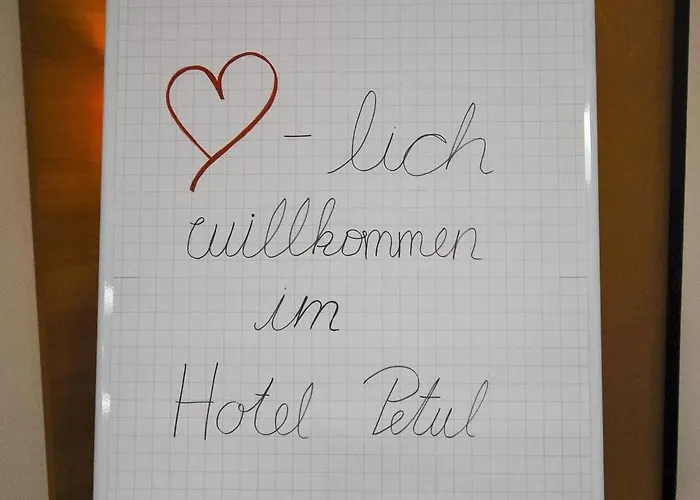 ♥ - lich
willkommen
im
Hotel Petul